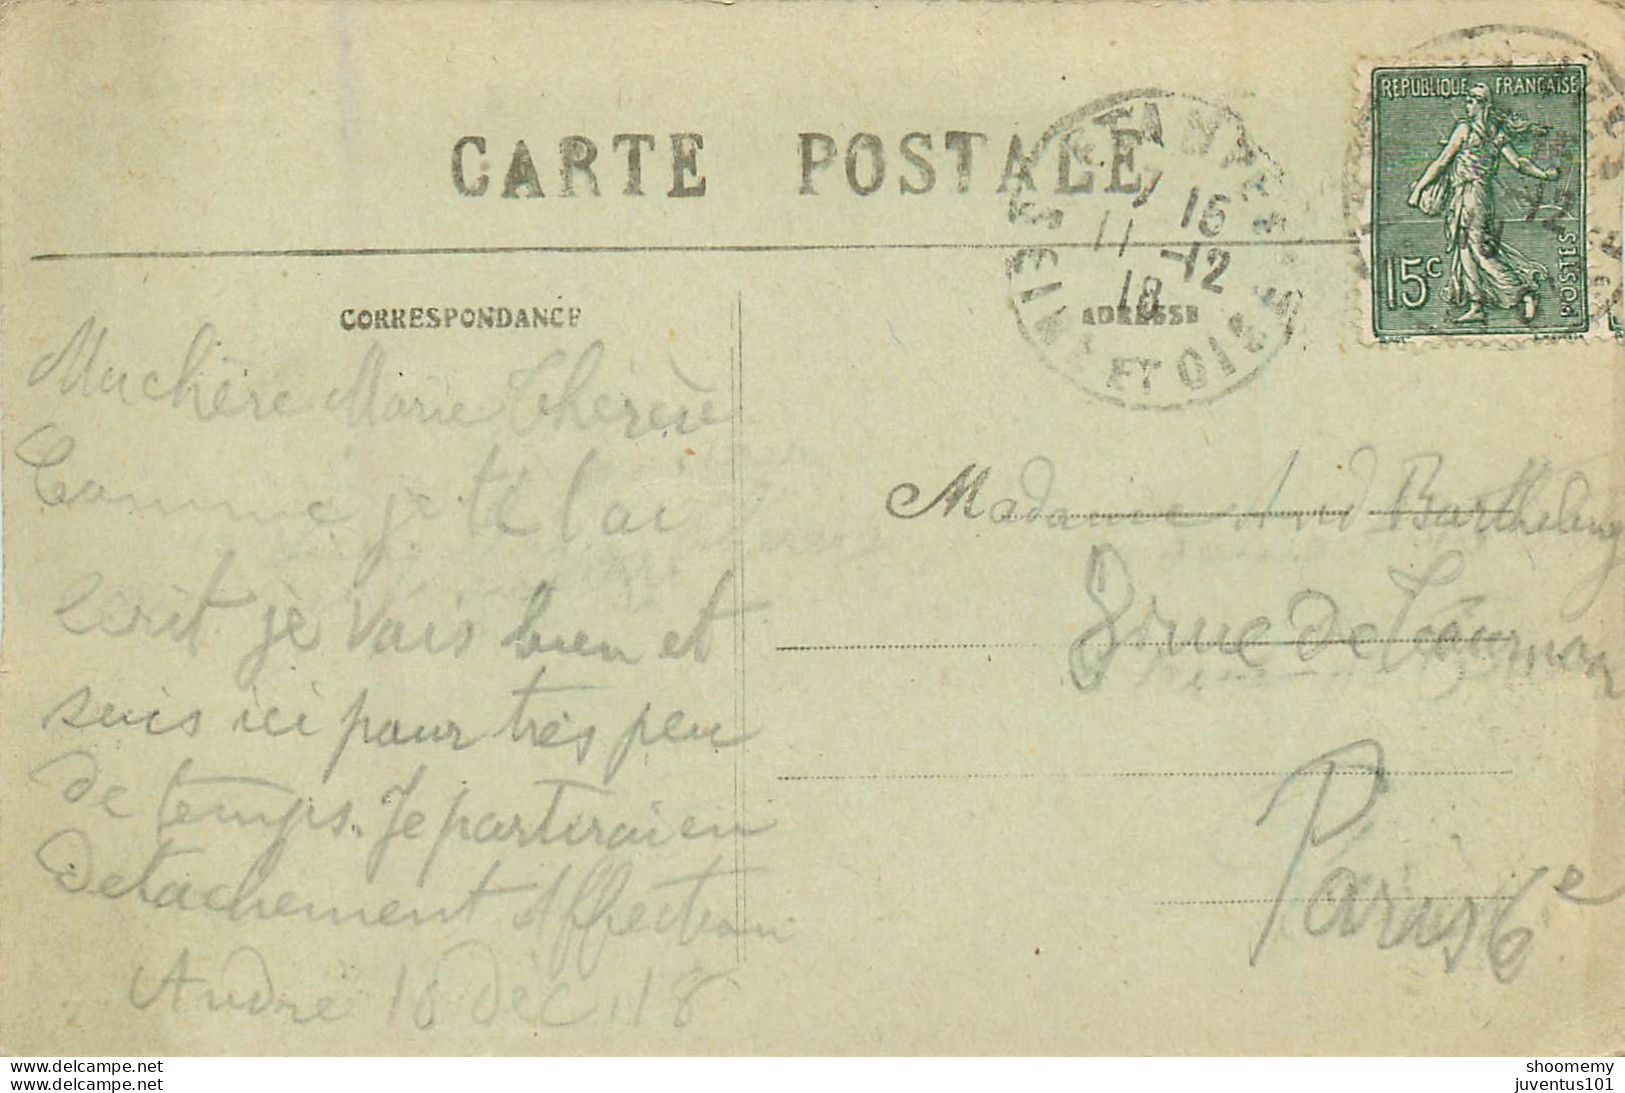 CARTE POSTALE
REPUBLIQUE FRANÇAISE
15c
POSTES
17 15
11 -12
18
SEINE ET OISE
CORRESPONDANCE
ADRESSE
Machère Marie Thérèse
Comme je te l'ai
écrit je vais bien et
suis ici pour très peu
de temps. Je partirai en
Detachement Affection
André 10 Déc. 18
Madame And Barthelemy
8 rue de Tournon
Paris 6e
shoomemy
juventus101